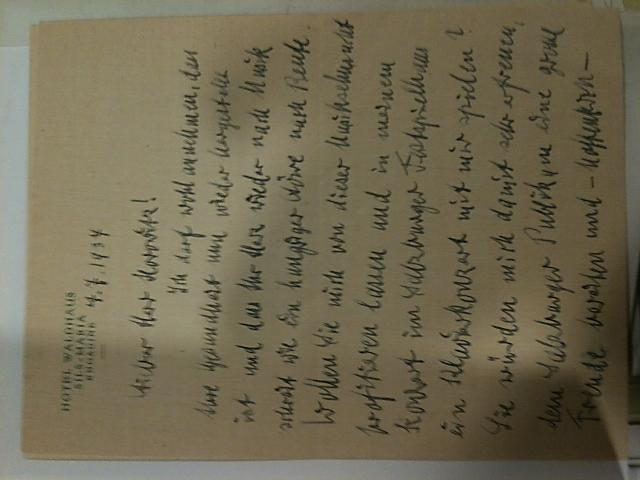 HOTEL WALDHAUS
SILS-MARIA
ENGADINE
4. 7. 1934
Lieber Herr Horowitz!
Ich darf wohl annehmen, dass
Ihre Gesundheit nun wieder hergestellt
ist und dass Ihr Herz wieder nach Musik
schreit wie ein hungriger Löwe nach Beute.
Wollen Sie mich von dieser Musiksehnsucht
profitieren lassen und in meinem
Konzert im Salzburger Festspielhaus
ein Klavierkonzert mit mir spielen?
Sie würden mich damit sehr erfreuen,
dem Salzburger Publikum eine grosse
Freude bereiten und – hoffentlich –